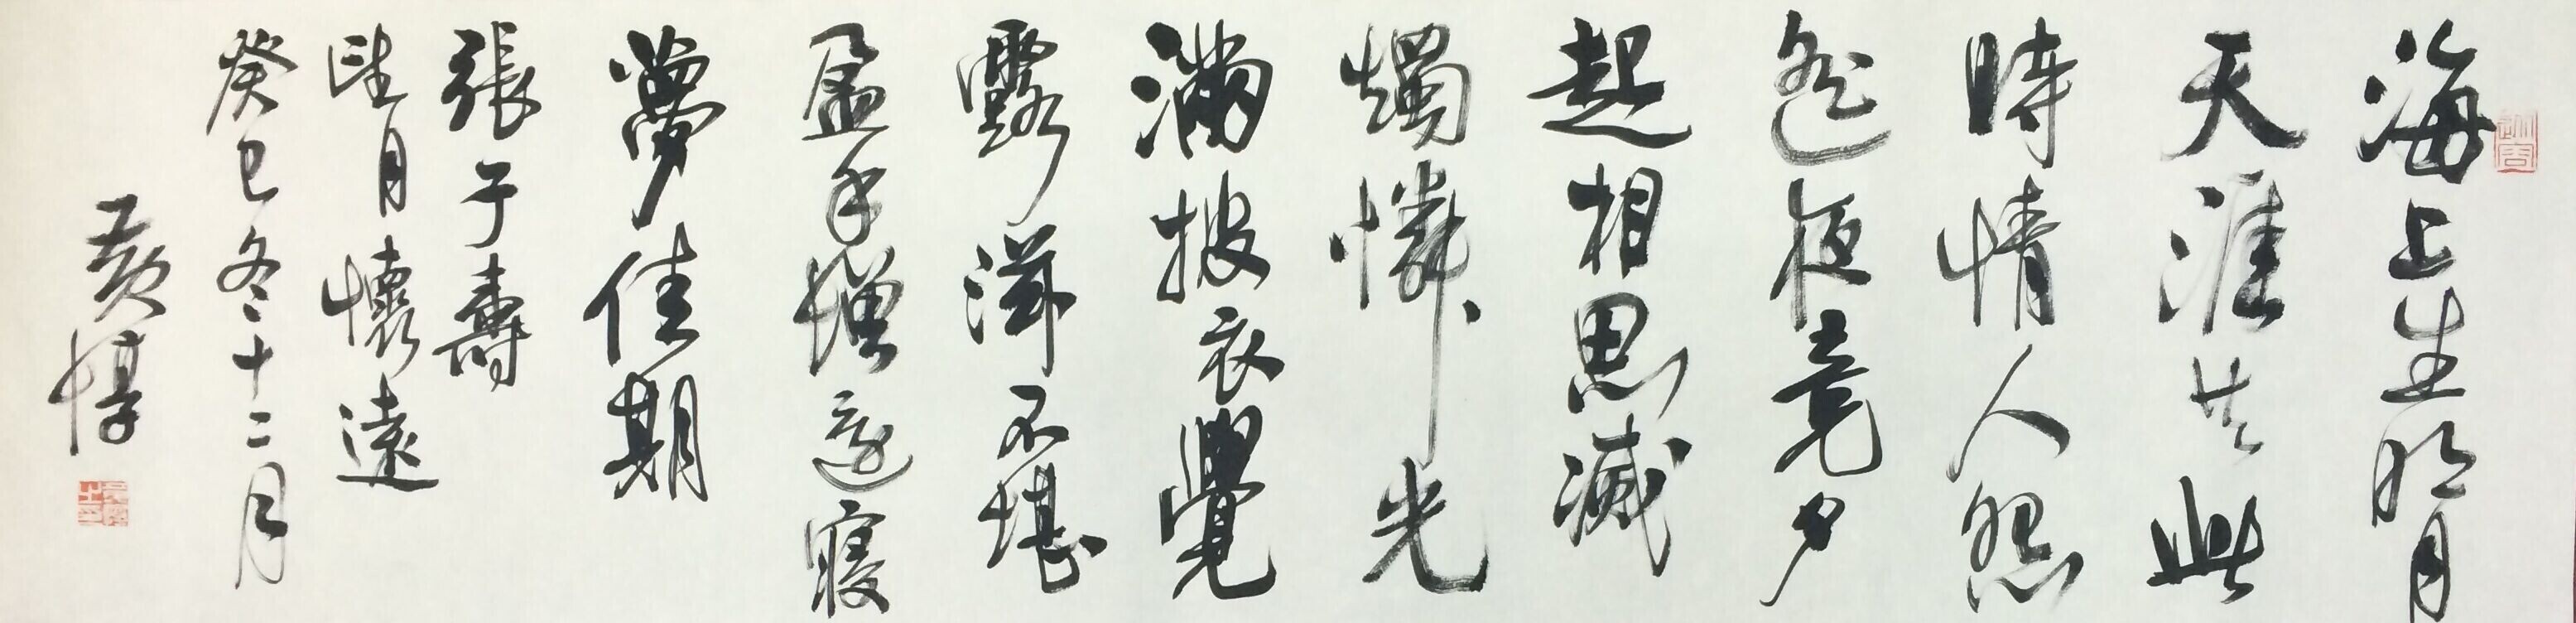 海上生明月
天涯共此
時情人怨
遙夜竟夕
起相思滅
燭憐光
滿披衣覺
露滋不堪
盈手贈還寢
夢佳期
張子壽
望月懷遠
癸巳冬十二月
黃惇